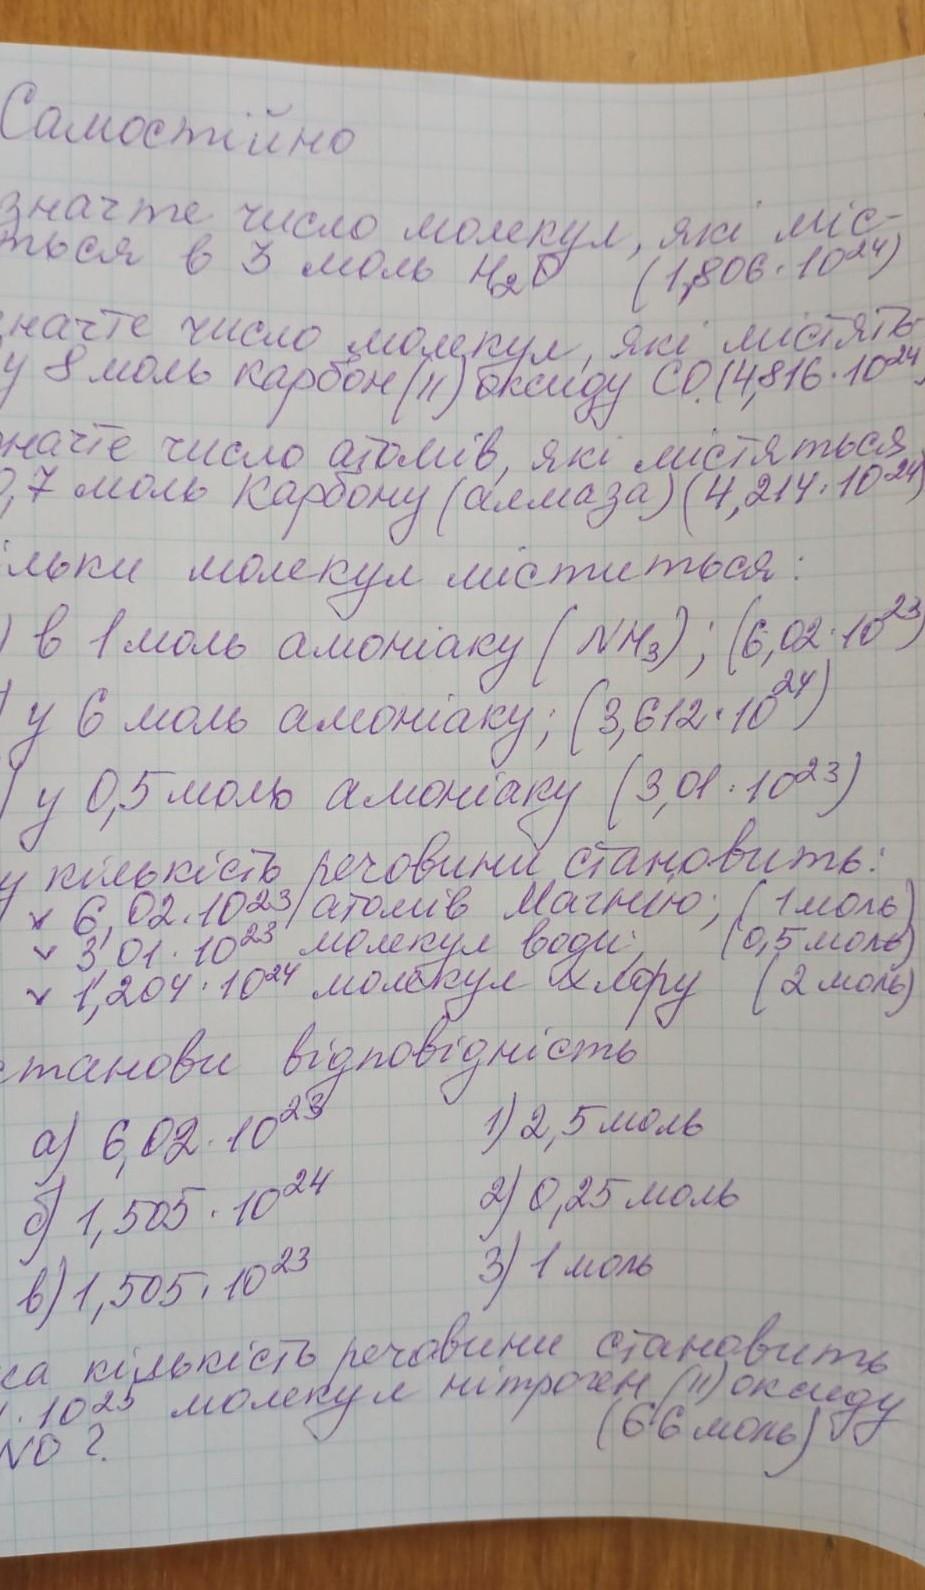 Самостійно
значте число молекул, які міс-
ться в 3 моль H₂O (1,806·10²⁴)
начте число молекул, які містять-
у 8 моль карбон(II) оксиду CO (4,816·10²⁴)
начте число атомів, які містяться
,7 моль Карбону (алмаза) (4,214·10²⁴)
ільки молекул міститься:
) в 1 моль амоніаку (NH₃); (6,02·10²³)
) у 6 моль амоніаку; (3,612·10²⁴)
) у 0,5 моль амоніаку (3,01·10²³)
у кількість речовини становить:
6,02·10²³ атомів Магнію; (1 моль)
3,01·10²³ молекул води; (0,5 моль)
1,204·10²⁴ молекул хлору (2 моль)
станови відповідність
а) 6,02·10²³ 1) 2,5 моль
б) 1,505·10²⁴ 2) 0,25 моль
в) 1,505·10²³ 3) 1 моль
ка кількість речовини становить
·10²³ молекул нітроген (II) оксиду
NO? (66 моль)